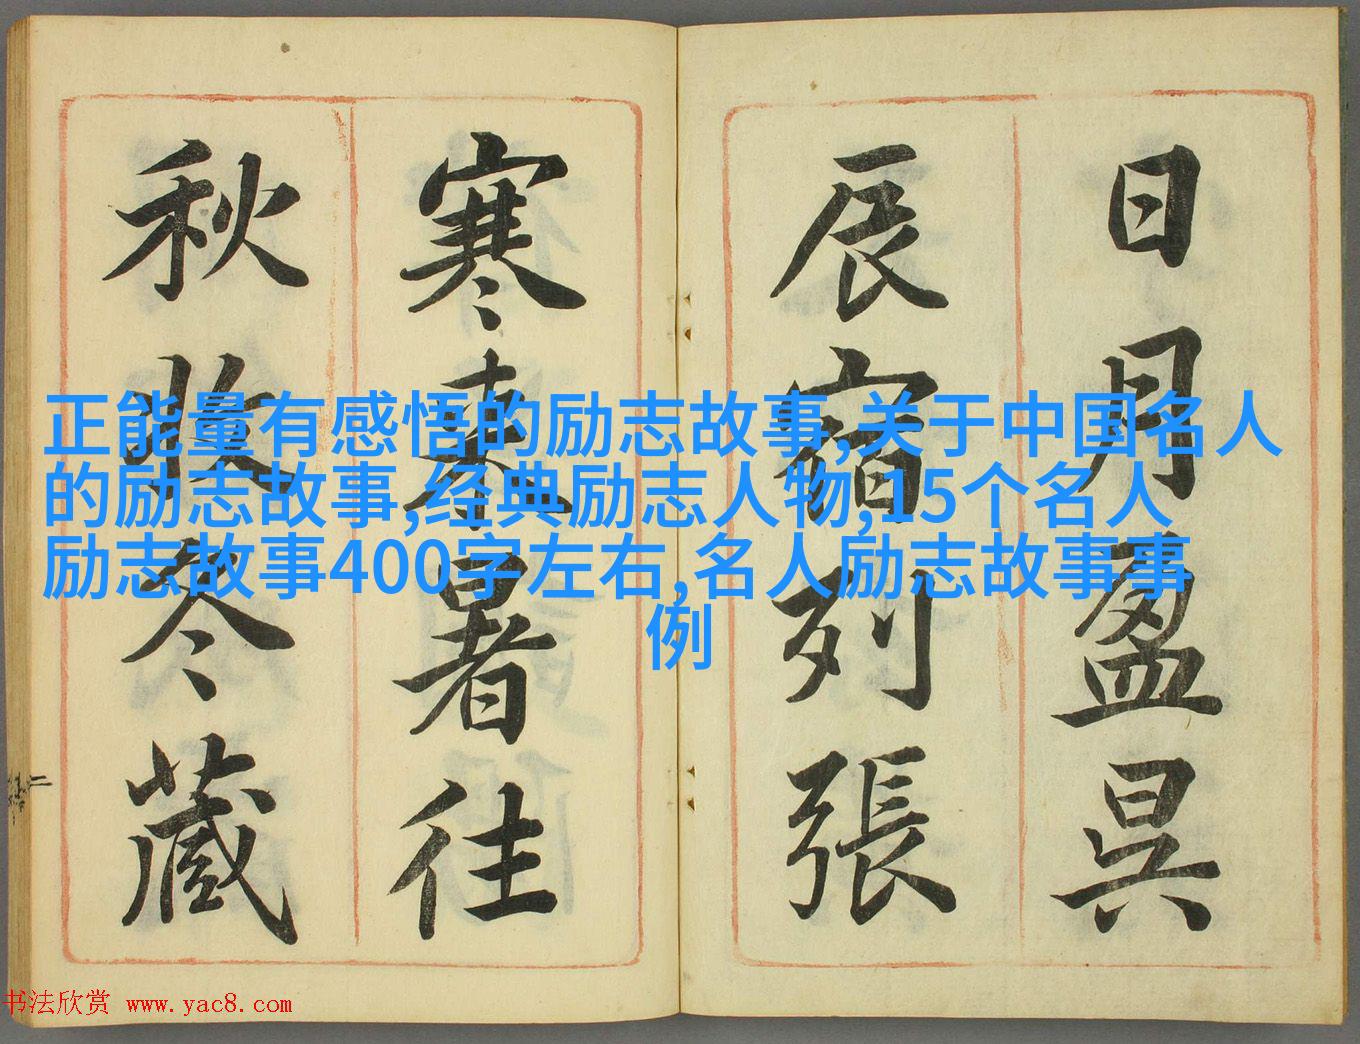 日月盈昃
辰宿列張
寒来暑往
秋收冬藏
正能量有感悟的励志故事,关于中国名人
的励志故事,经典励志人物,15个名人
励志故事400字左右,名人励志故事事
例
二
书法欣赏 www.yac8.com